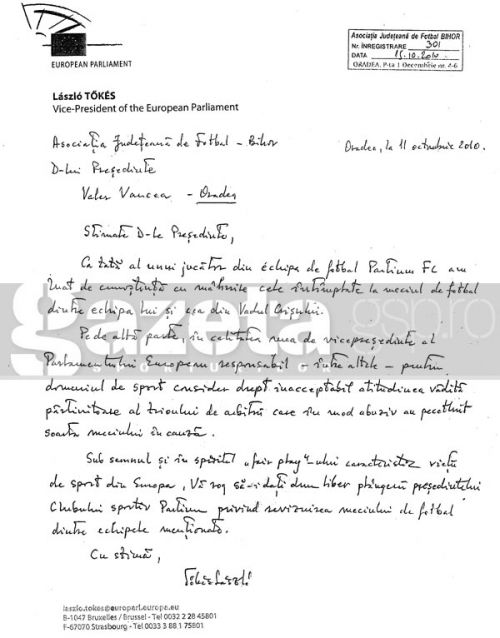 EUROPEAN PARLIAMENT
Asociaţia Judeţeană de Fotbal BIHOR
Nr. ÎNREGISTRARE 301
DATA 15.10.2010
ORADEA, P-ta 1 Decembrie nr. 4-6
László TŐKÉS
Vice-President of the European Parliament
Asociaţia Judeţeană de Fotbal - Bihor
Oradea, la 11 octombrie 2010.
D-lui Preşedinte
Valer Vancea - Oradea
Stimate D-le Preşedinte,
Ca tată al unui jucător din echipa de fotbal Partium FC am
luat de cunoştinţă cu mâhnire cele întâmplate la meciul de fotbal
dintre echipa lui şi cea din Vadul Crişului.
Pe de altă parte, în calitatea mea de vicepreşedinte al
Parlamentului European responsabil - între altele - pentru
domeniul de sport consider drept inacceptabil atitudinea vădită
părtinitoare al trioului de arbitri care în mod abuziv au pecetluit
soarta meciului în cauză.
Sub semnul şi în spiritul "fair play"-ului caracteristic vieţii
de sport din Europa, Vă rog să-i daţi drum liber plângerii preşedintelui
Clubului sportiv Partium privind revizuirea meciului de fotbal
dintre echipele menţionate.
Cu stimă,
Tőkés László
gazeta gsp.ro
laszlo.tokes@europarl.europa.eu
B-1047 Bruxelles / Brussel - Tel 0032 2 28 45801
F-67070 Strasbourg - Tel 0033 3 88 1 75801